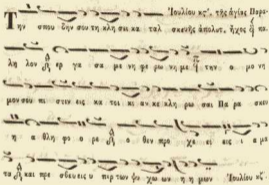 Ἰουλίου κϛʹ, τῆς ἁγίας Παρα-
Την σπου δην σου τη κλη σει κα ταλ σκευῆς ἀπολυτ, ἦχος
λη λον ερ γα σα με νη φε ρω νυ με την ο μω νυ
μον σου πι στιν εις κα τοι κι αν κε κλη ρω σαι Πα ρα σκε
η α θλη φο ρε ο θεν προ χε εις ι α μα
τα και πρε σβευεις υ περ των ψυ χων η μων Ἰουλίου κζʹ